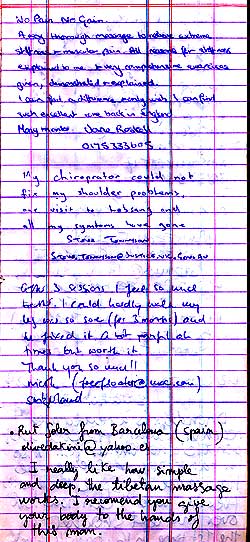 No Pain No Gain.
A very thorough massage to relieve extreme
stiffness & muscular pain. All reasons for stiffness
explained to me. Very comprehensive exercises
given, demonstrated & explained.
I can feel a difference already wish I could find
such excellent care back in England
Many thanks Jane
My chiropractor could not
fix my shoulder problems
one visit to Lobsang and
all my symptoms have gone
Steve Townson
After 3 sessions I feel so much
better. I could hardly walk my
leg was so sore (for 3 months) and
he fixed it. A bit painful at
times but worth it
Thank you so much!!
Switzerland
• Rut Soler from Barcelona (Spain)
@yahoo.es
I really like how simple
and deep, the tibetan massage
works. I recomend you give
your body to the hands of
this man.